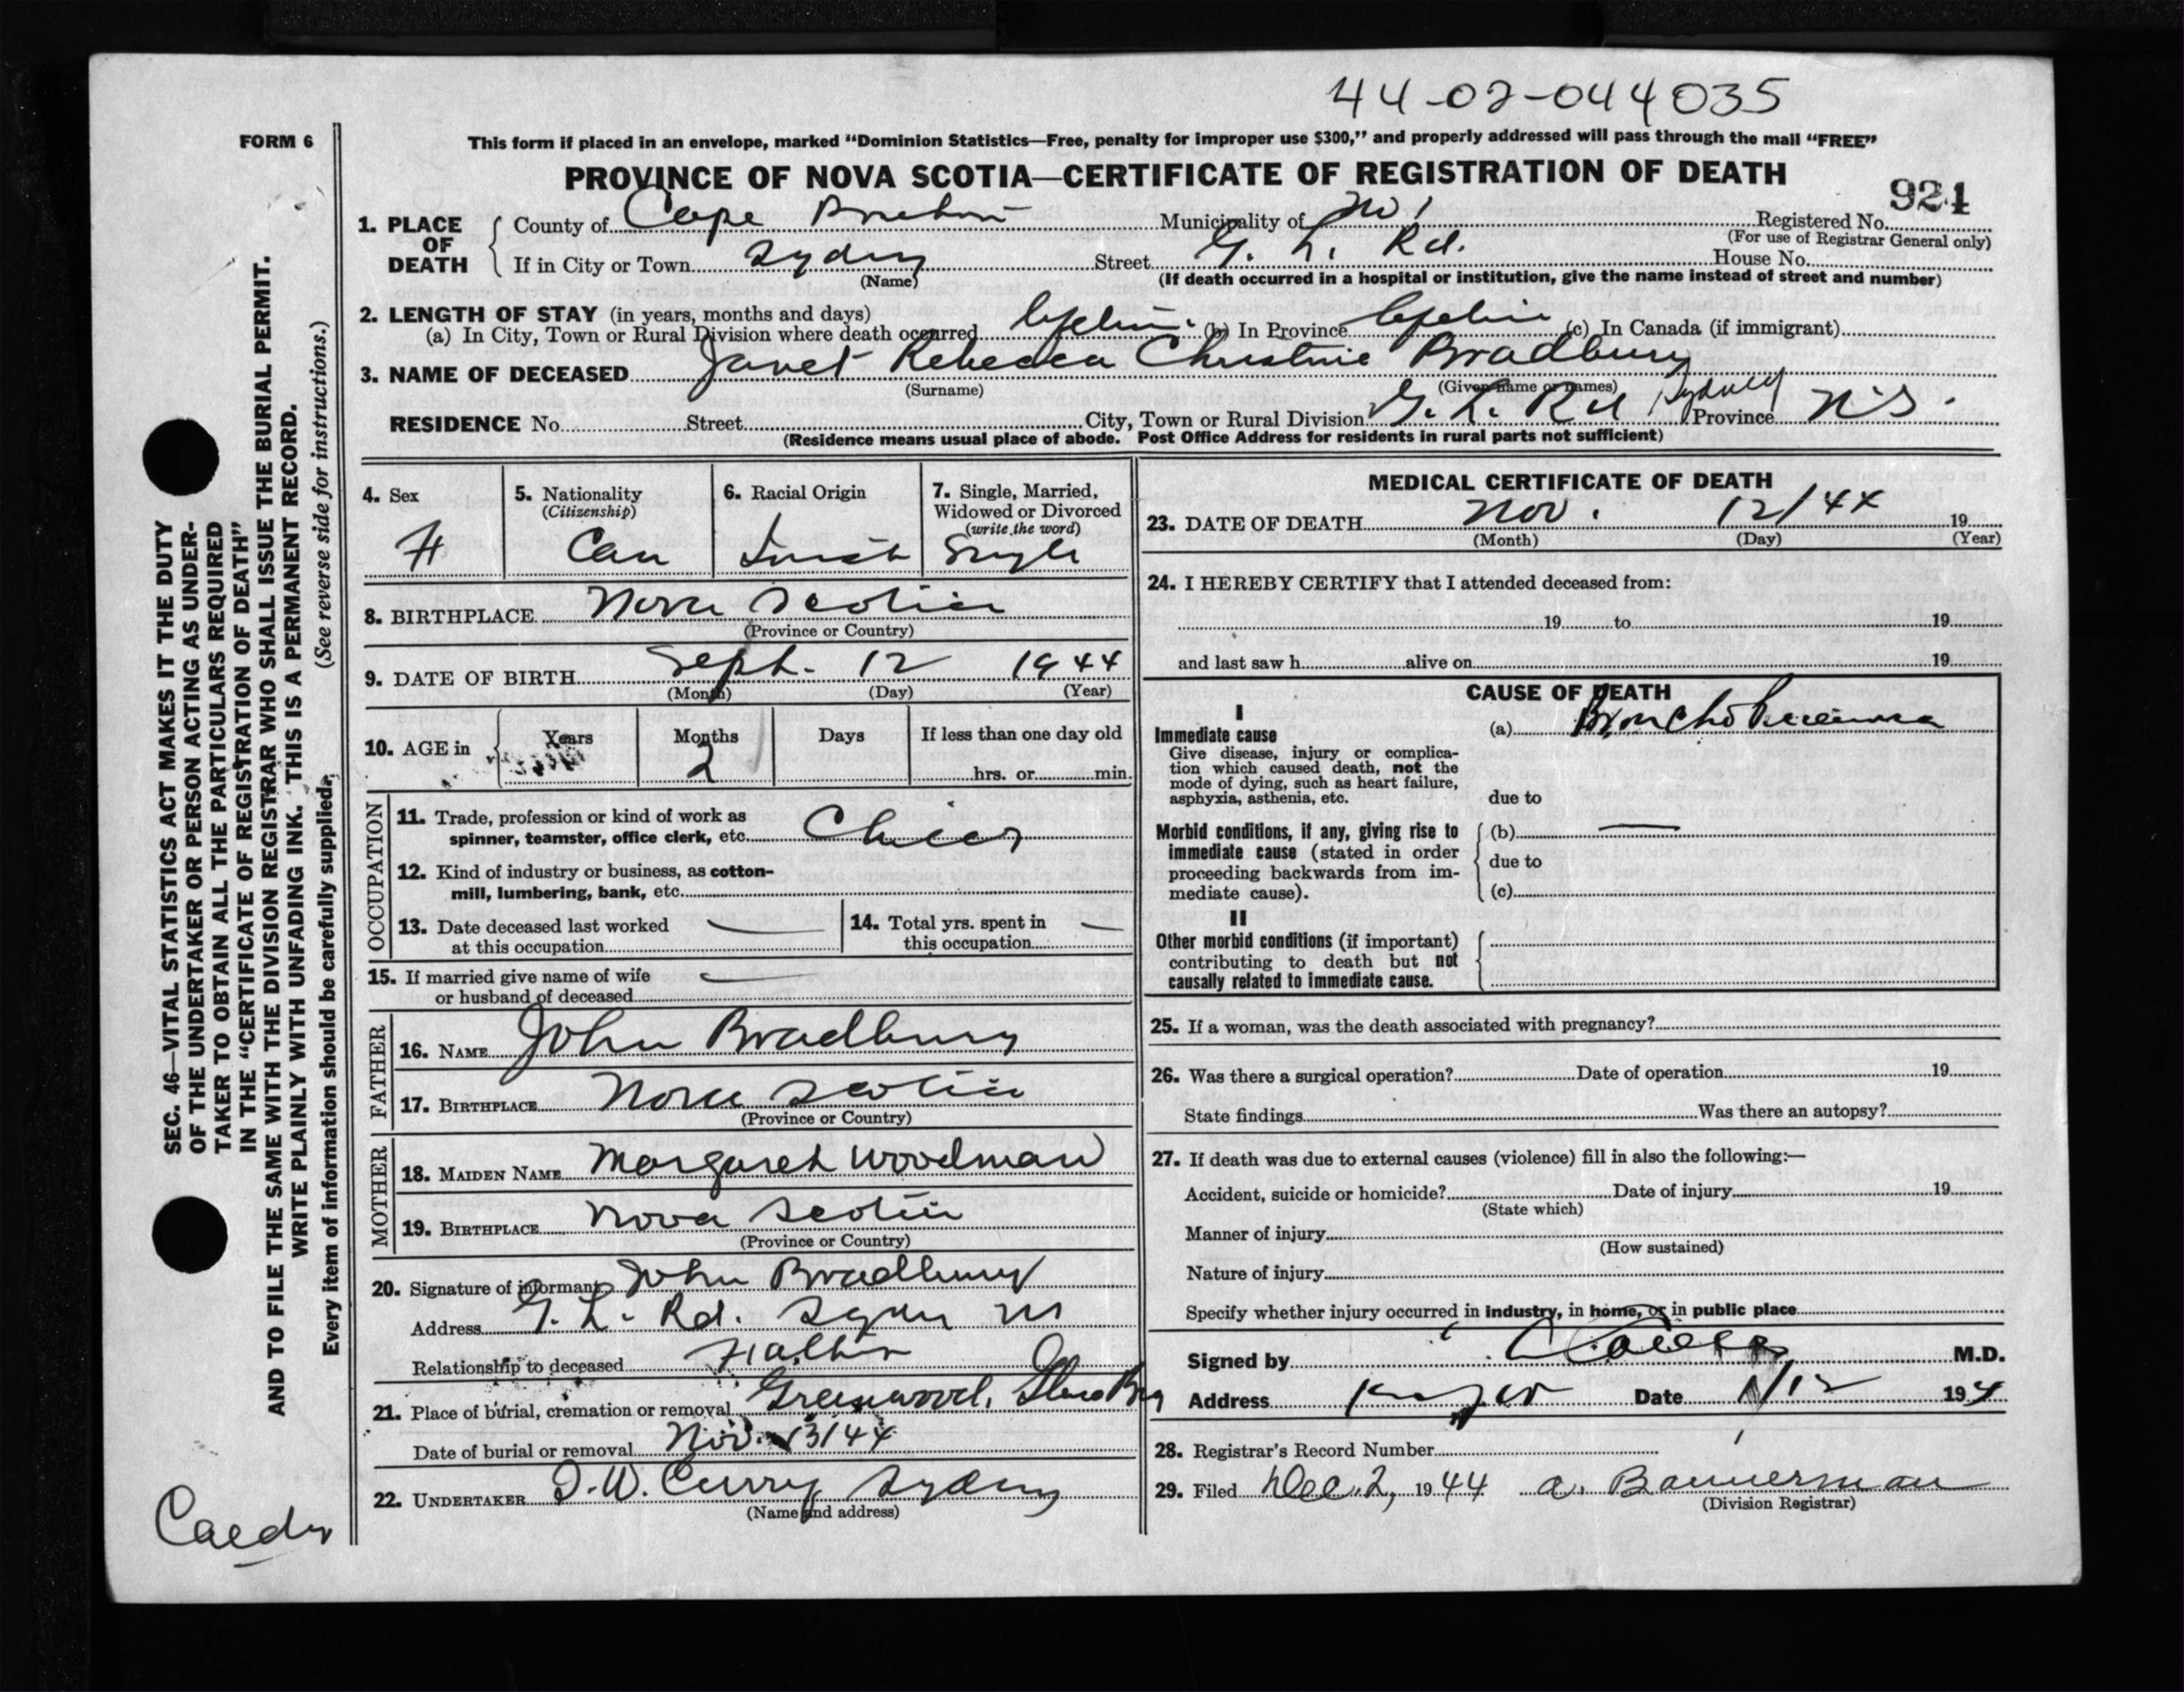 44-02-044035
FORM 6
This form if placed in an envelope, marked "Dominion Statistics—Free, penalty for improper use $300," and properly addressed will pass through the mail "FREE"
PROVINCE OF NOVA SCOTIA—CERTIFICATE OF REGISTRATION OF DEATH
924
1. PLACE OF DEATH { County of Cape Breton Municipality of No 1 Registered No.
(For use of Registrar General only)
If in City or Town Sydney Street G. L. Rd. House No.
(Name) (If death occurred in a hospital or institution, give the name instead of street and number)
2. LENGTH OF STAY (in years, months and days)
(a) In City, Town or Rural Division where death occurred Lifetime (b) In Province Lifetime (c) In Canada (if immigrant)
3. NAME OF DECEASED Janet Rebecca Christine Bradbury
(Surname) (Given name or names)
RESIDENCE No. Street City, Town or Rural Division G. L. Rd Sydney Province N.S.
(Residence means usual place of abode. Post Office Address for residents in rural parts not sufficient)
4. Sex
F
5. Nationality
(Citizenship)
Can
6. Racial Origin
7. Single, Married,
Widowed or Divorced
(write the word)
Single
8. BIRTHPLACE Nova Scotia
(Province or Country)
9. DATE OF BIRTH Sept. 12 1944
(Month) (Day) (Year)
10. AGE in { Years Months Days If less than one day old
2 hrs. or min.
OCCUPATION
11. Trade, profession or kind of work as
spinner, teamster, office clerk, etc.
12. Kind of industry or business, as cotton-
mill, lumbering, bank, etc.
13. Date deceased last worked
at this occupation —
14. Total yrs. spent in
this occupation —
15. If married give name of wife
or husband of deceased —
FATHER
16. NAME John Bradbury
17. BIRTHPLACE Nova Scotia
(Province or Country)
MOTHER
18. MAIDEN NAME Margaret Woodman
19. BIRTHPLACE Nova Scotia
(Province or Country)
20. Signature of informant John Bradbury
Address G. L. Rd. Sydney NS
Relationship to deceased Father
21. Place of burial, cremation or removal Greenwood, Glace Bay
Date of burial or removal Nov. 13/44
22. UNDERTAKER Curry Sydney
(Name and address)
MEDICAL CERTIFICATE OF DEATH
23. DATE OF DEATH Nov. 12/44 19
(Month) (Day) (Year)
24. I HEREBY CERTIFY that I attended deceased from:
19 to 19
and last saw h alive on 19
CAUSE OF DEATH
I
Immediate cause
Give disease, injury or complica-
tion which caused death, not the
mode of dying, such as heart failure,
asphyxia, asthenia, etc.
(a) Broncho Pneumonia
due to
Morbid conditions, if any, giving rise to
immediate cause (stated in order
proceeding backwards from im-
mediate cause).
(b) —
due to
(c)
II
Other morbid conditions (if important)
contributing to death but not
causally related to immediate cause.
25. If a woman, was the death associated with pregnancy?
26. Was there a surgical operation? Date of operation 19
State findings Was there an autopsy?
27. If death was due to external causes (violence) fill in also the following:—
Accident, suicide or homicide? Date of injury 19
(State which)
Manner of injury
(How sustained)
Nature of injury
Specify whether injury occurred in industry, in home, or in public place
Signed by M.D.
Address Date 11/12 194
28. Registrar's Record Number
29. Filed Dec. 2, 1944 A. Bannerman
(Division Registrar)
SEC. 46—VITAL STATISTICS ACT MAKES IT THE DUTY
OF THE UNDERTAKER OR PERSON ACTING AS UNDER-
TAKER TO OBTAIN ALL THE PARTICULARS REQUIRED
IN THE "CERTIFICATE OF REGISTRATION OF DEATH"
AND TO FILE THE SAME WITH THE DIVISION REGISTRAR WHO SHALL ISSUE THE BURIAL PERMIT.
WRITE PLAINLY WITH UNFADING INK. THIS IS A PERMANENT RECORD.
Every item of information should be carefully supplied. (See reverse side for instructions.)